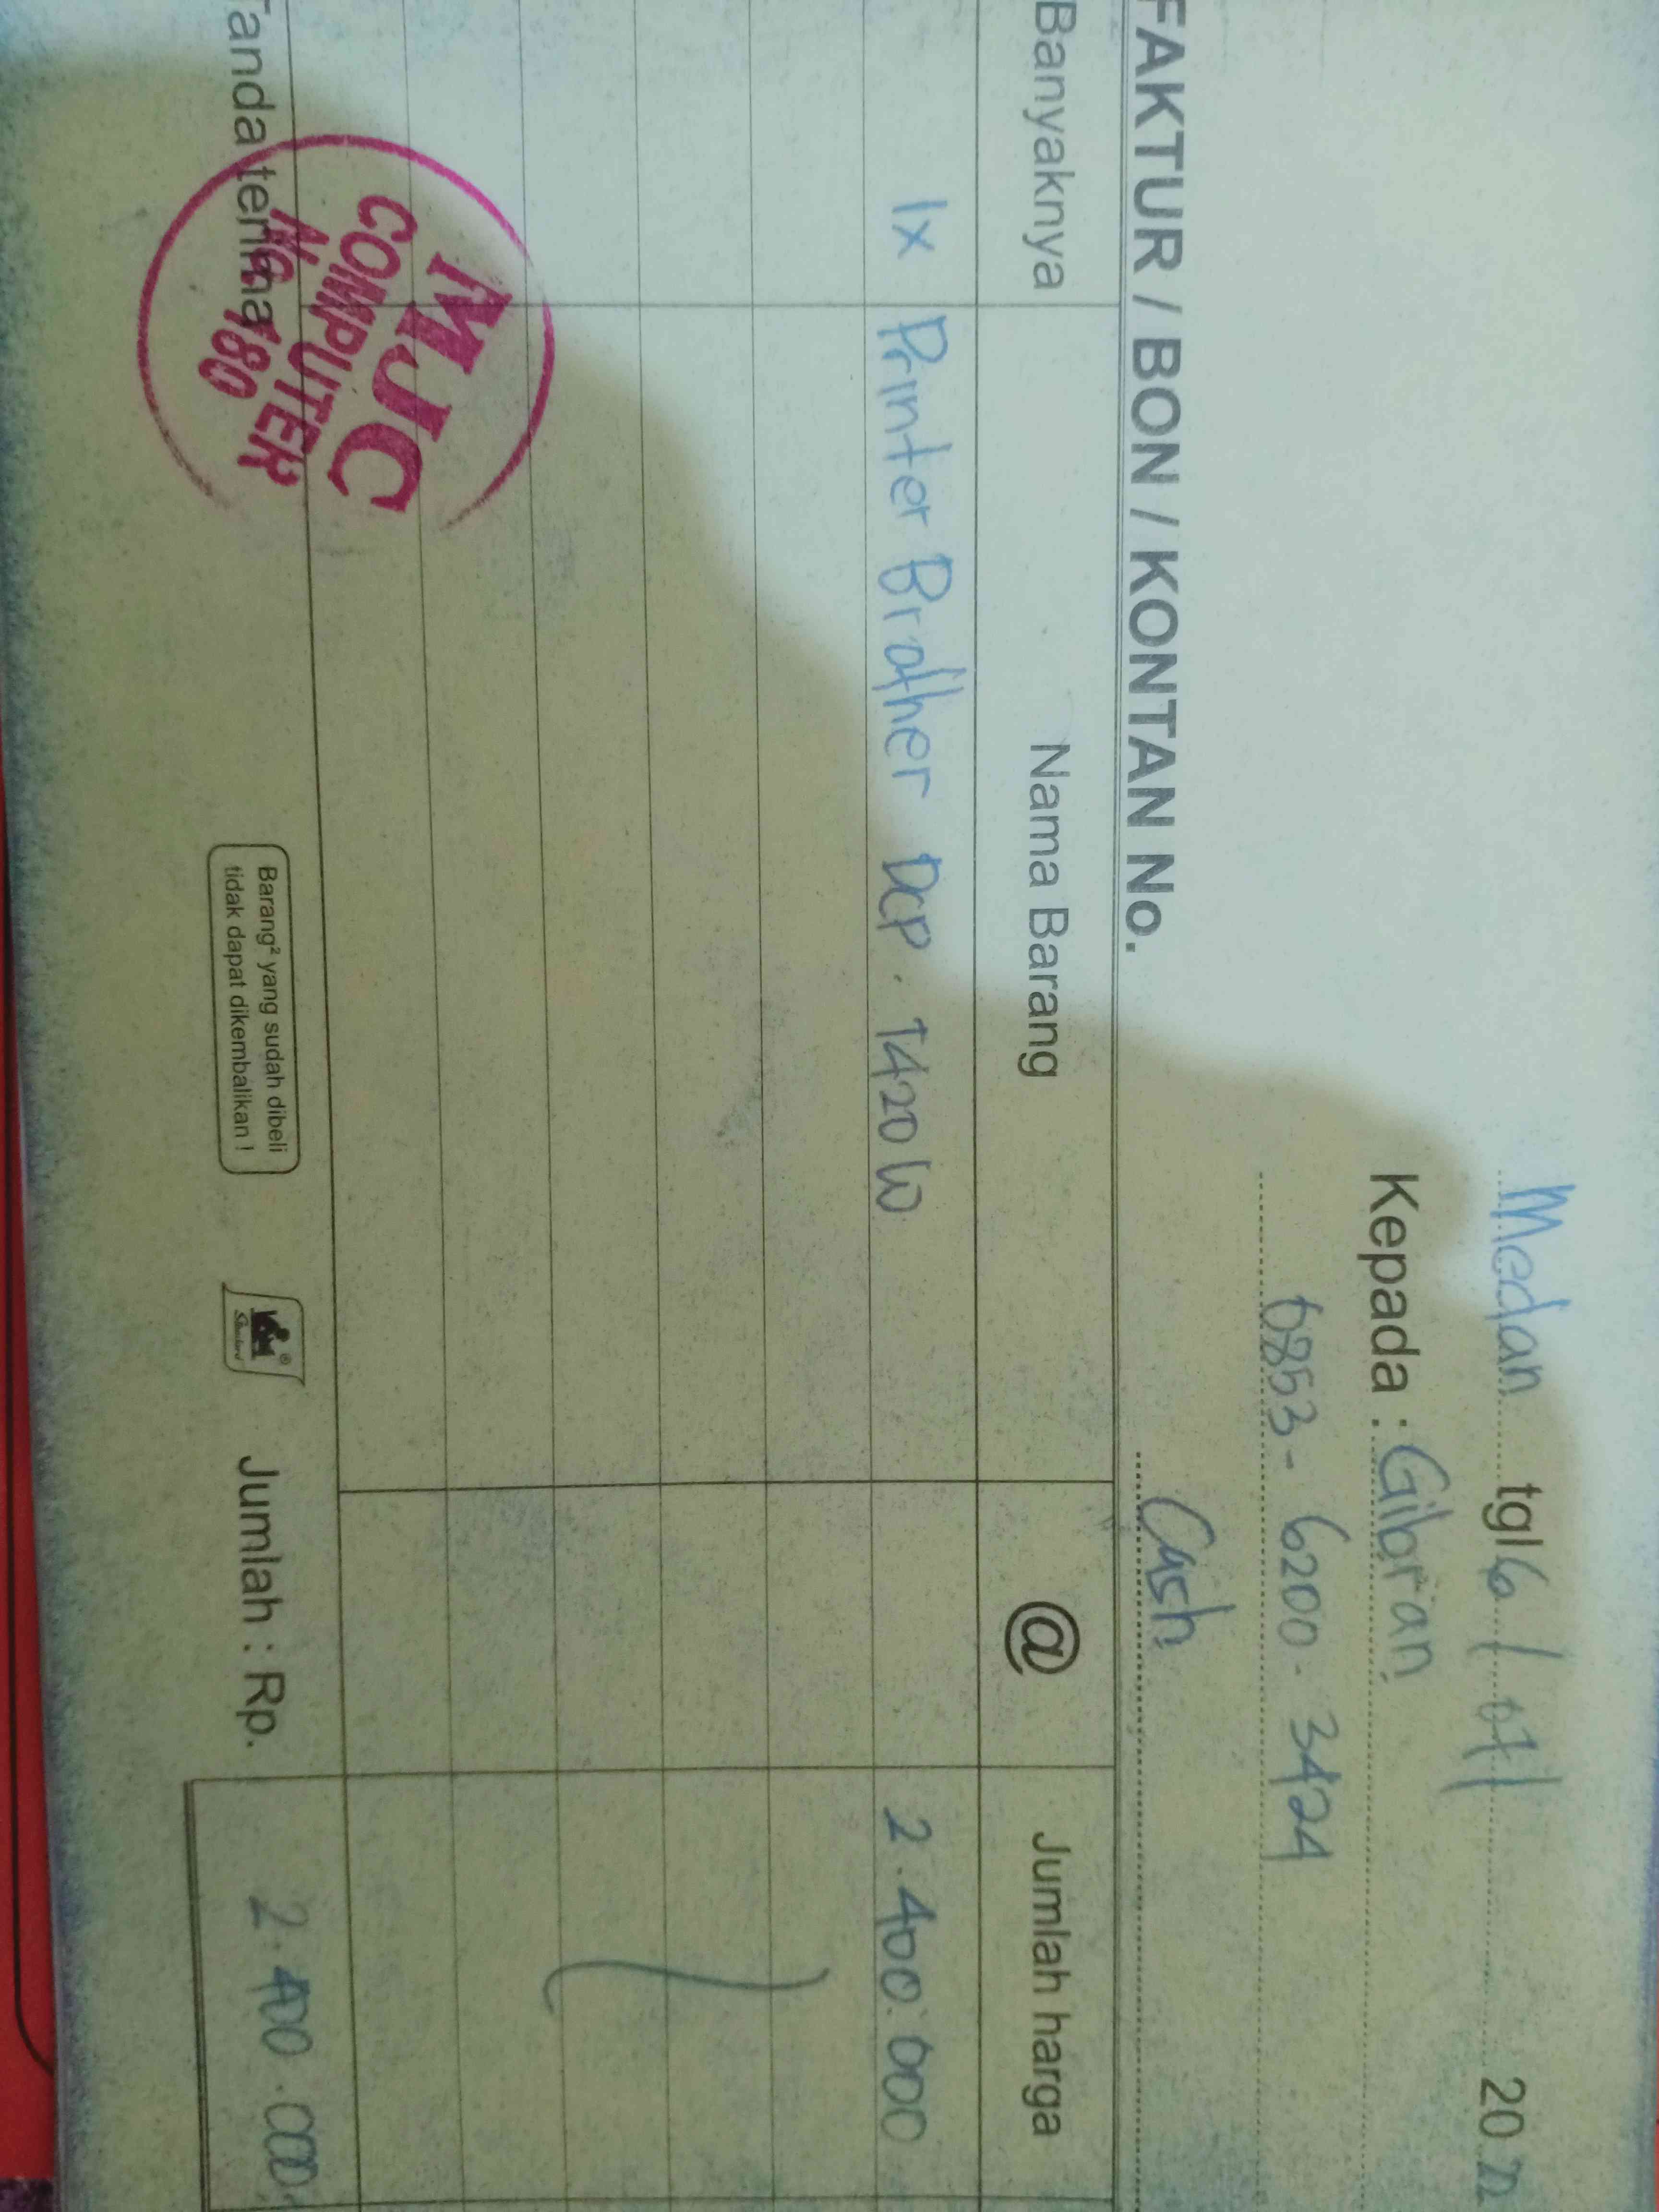 Medan tgl 6 / 07 / 20 22
Kepada : Gibran
0853 - 6200 - 3424
FAKTUR / BON / KONTAN No.
Cash
Banyaknya Nama Barang @ Jumlah harga
1x Printer Brother DCP. T420W 2.400.000
Tanda terima
MJC
COMPUTER
180
Barang² yang sudah dibeli
tidak dapat dikembalikan !
Jumlah : Rp. 2.400.000